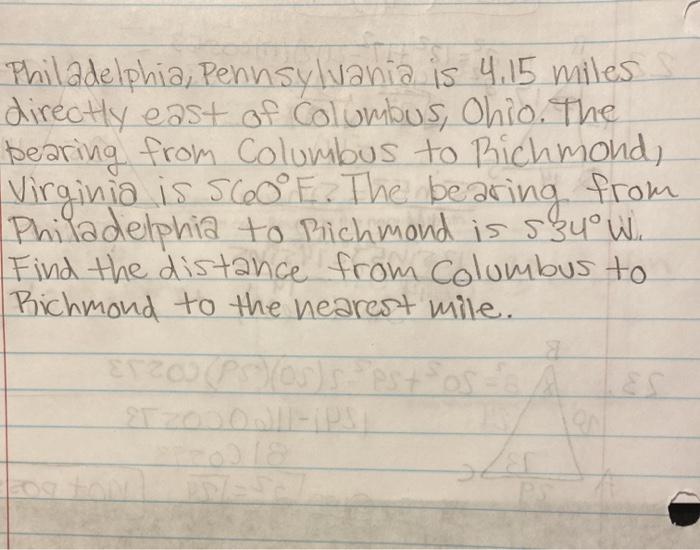 Philadelphia, Pennsylvania is 4.15 miles
directly east of Columbus, Ohio. The
bearing from Columbus to Richmond,
Virginia is S60°E. The bearing from
Philadelphia to Richmond is S34°W.
Find the distance from Columbus to
Richmond to the nearest mile.